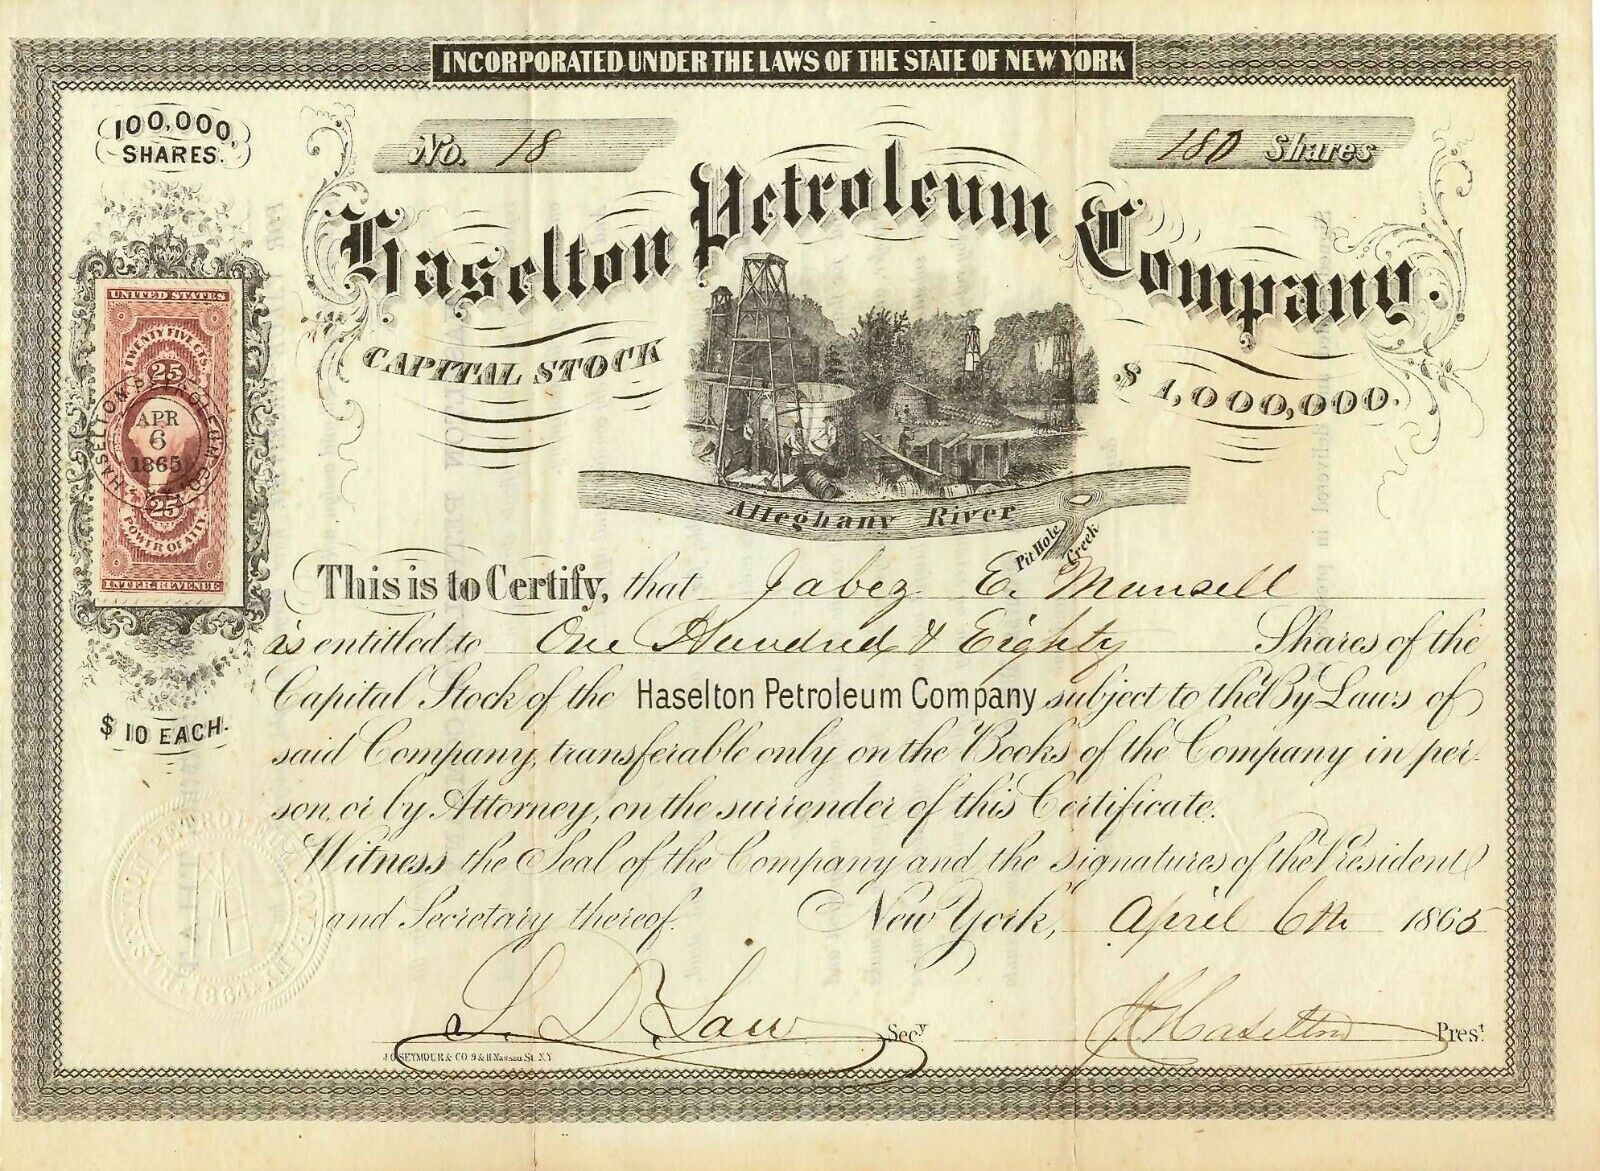 INCORPORATED UNDER THE LAWS OF THE STATE OF NEW YORK
100,000
SHARES.
No. 18
180 Shares
Haselton Petroleum Company.
CAPITAL STOCK
$1,000,000.
UNITED STATES
TWENTY FIVE CTS.
25
HASELTON PETROLEUM CO.
APR
6
1865
N.Y.
25
POWER OF ATT'Y.
INTER. REVENUE
Alleghany River
Pit Hole Creek
This is to Certify, that Jabez E. Munsell
is entitled to One Hundred & Eighty Shares of the
Capital Stock of the Haselton Petroleum Company subject to the By Laws of
said Company, transferable only on the Books of the Company in per-
son, or by Attorney, on the surrender of this Certificate.
$10 EACH.
Witness the Seal of the Company and the signatures of the President
and Secretary thereof. New York, April 6th 1865
HASELTON PETROLEUM COMPANY
1864
L. D. Law Secy
J. Haselton Prest
J.O. SEYMOUR & CO 9 & 11 Nassau St. N.Y.